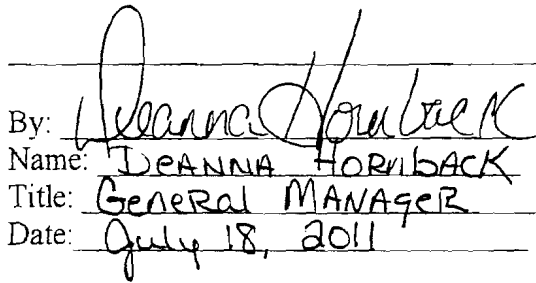 By: Deanna Hornback
Name: DEANNA HORNBACK
Title: GENERAL MANAGER
Date: July 18, 2011